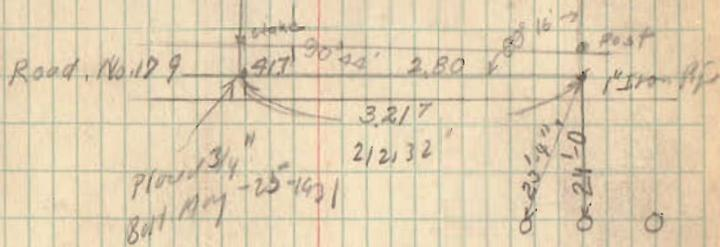 Stake
88° 16'
Post
Road. No. 179
.417
90° 44'
2.80
1" Iron Pipe
3.217
212.32'
Placed 3/4"
Bolt Aug -25-1931
23'-4"
21'-0